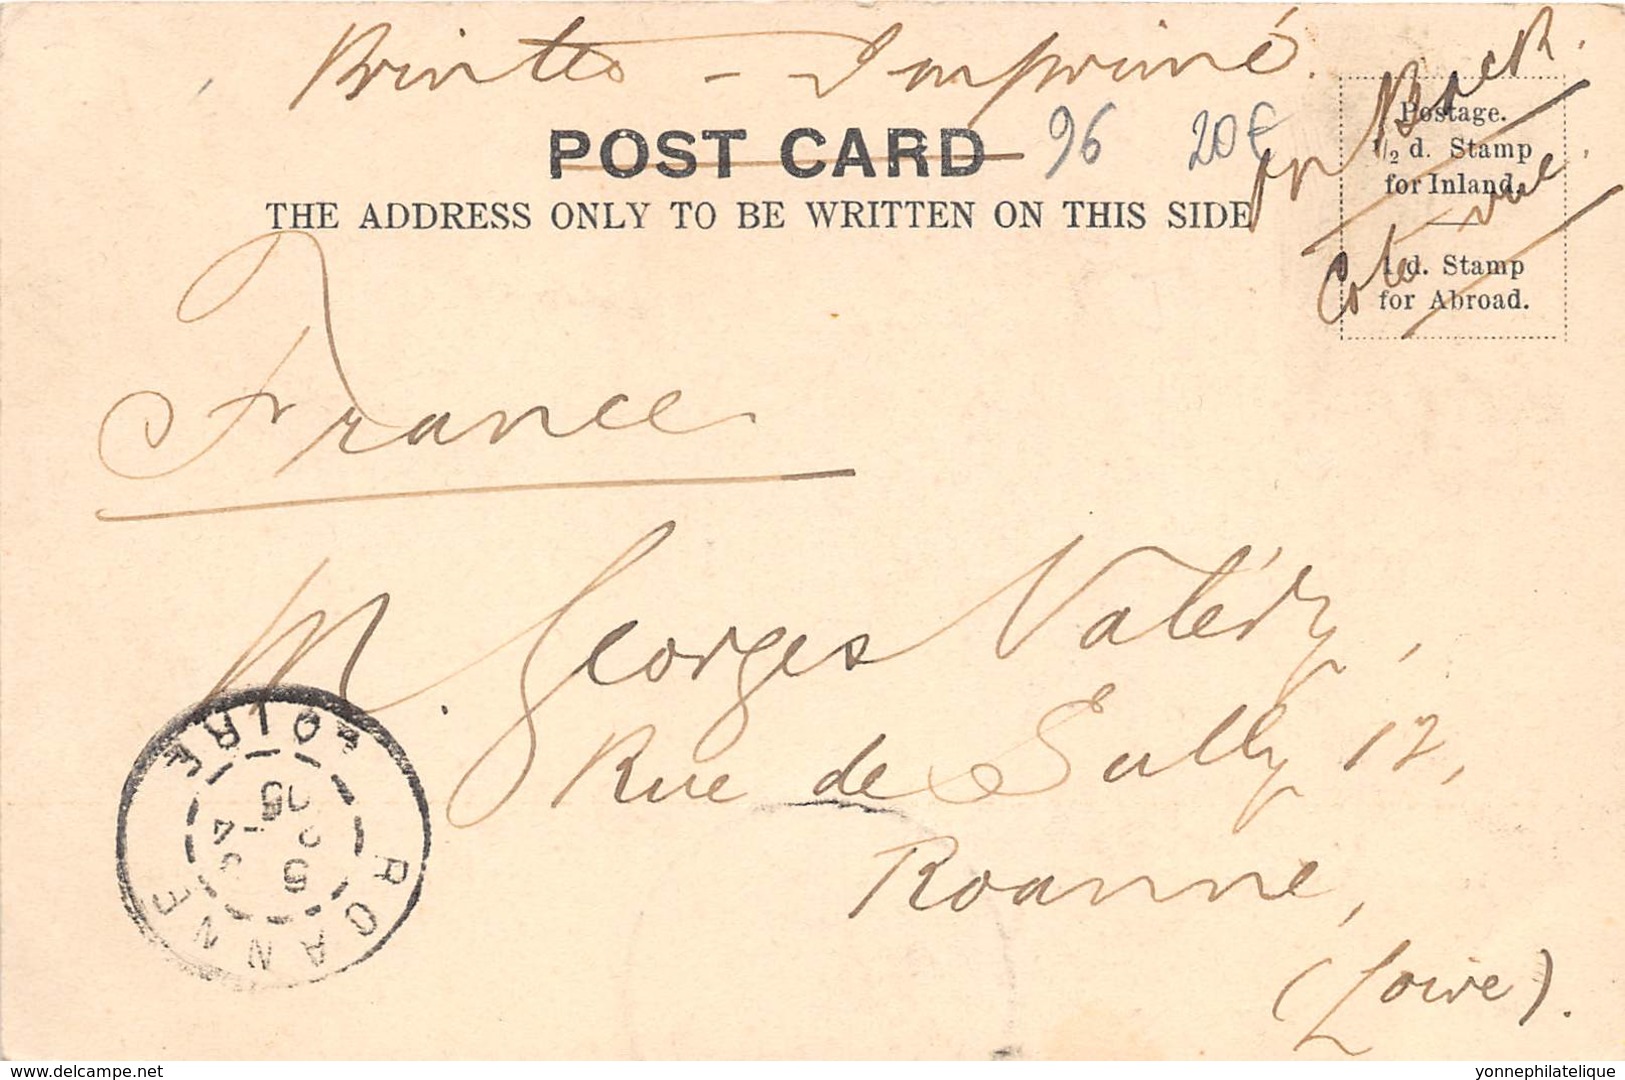 Printed - Imprimé.
POST CARD
96
20€
THE ADDRESS ONLY TO BE WRITTEN ON THIS SIDE
Postage.
1/2 d. Stamp
for Inland.
1 d. Stamp
for Abroad.
Stamp on Back.
Coté vue.
France
M. Georges Valéry,
Rue de Sully 12,
Roanne,
(Loire).
ROANNE
LOIRE
yonnephilatelie.delcampe.net
yonnephilatelique